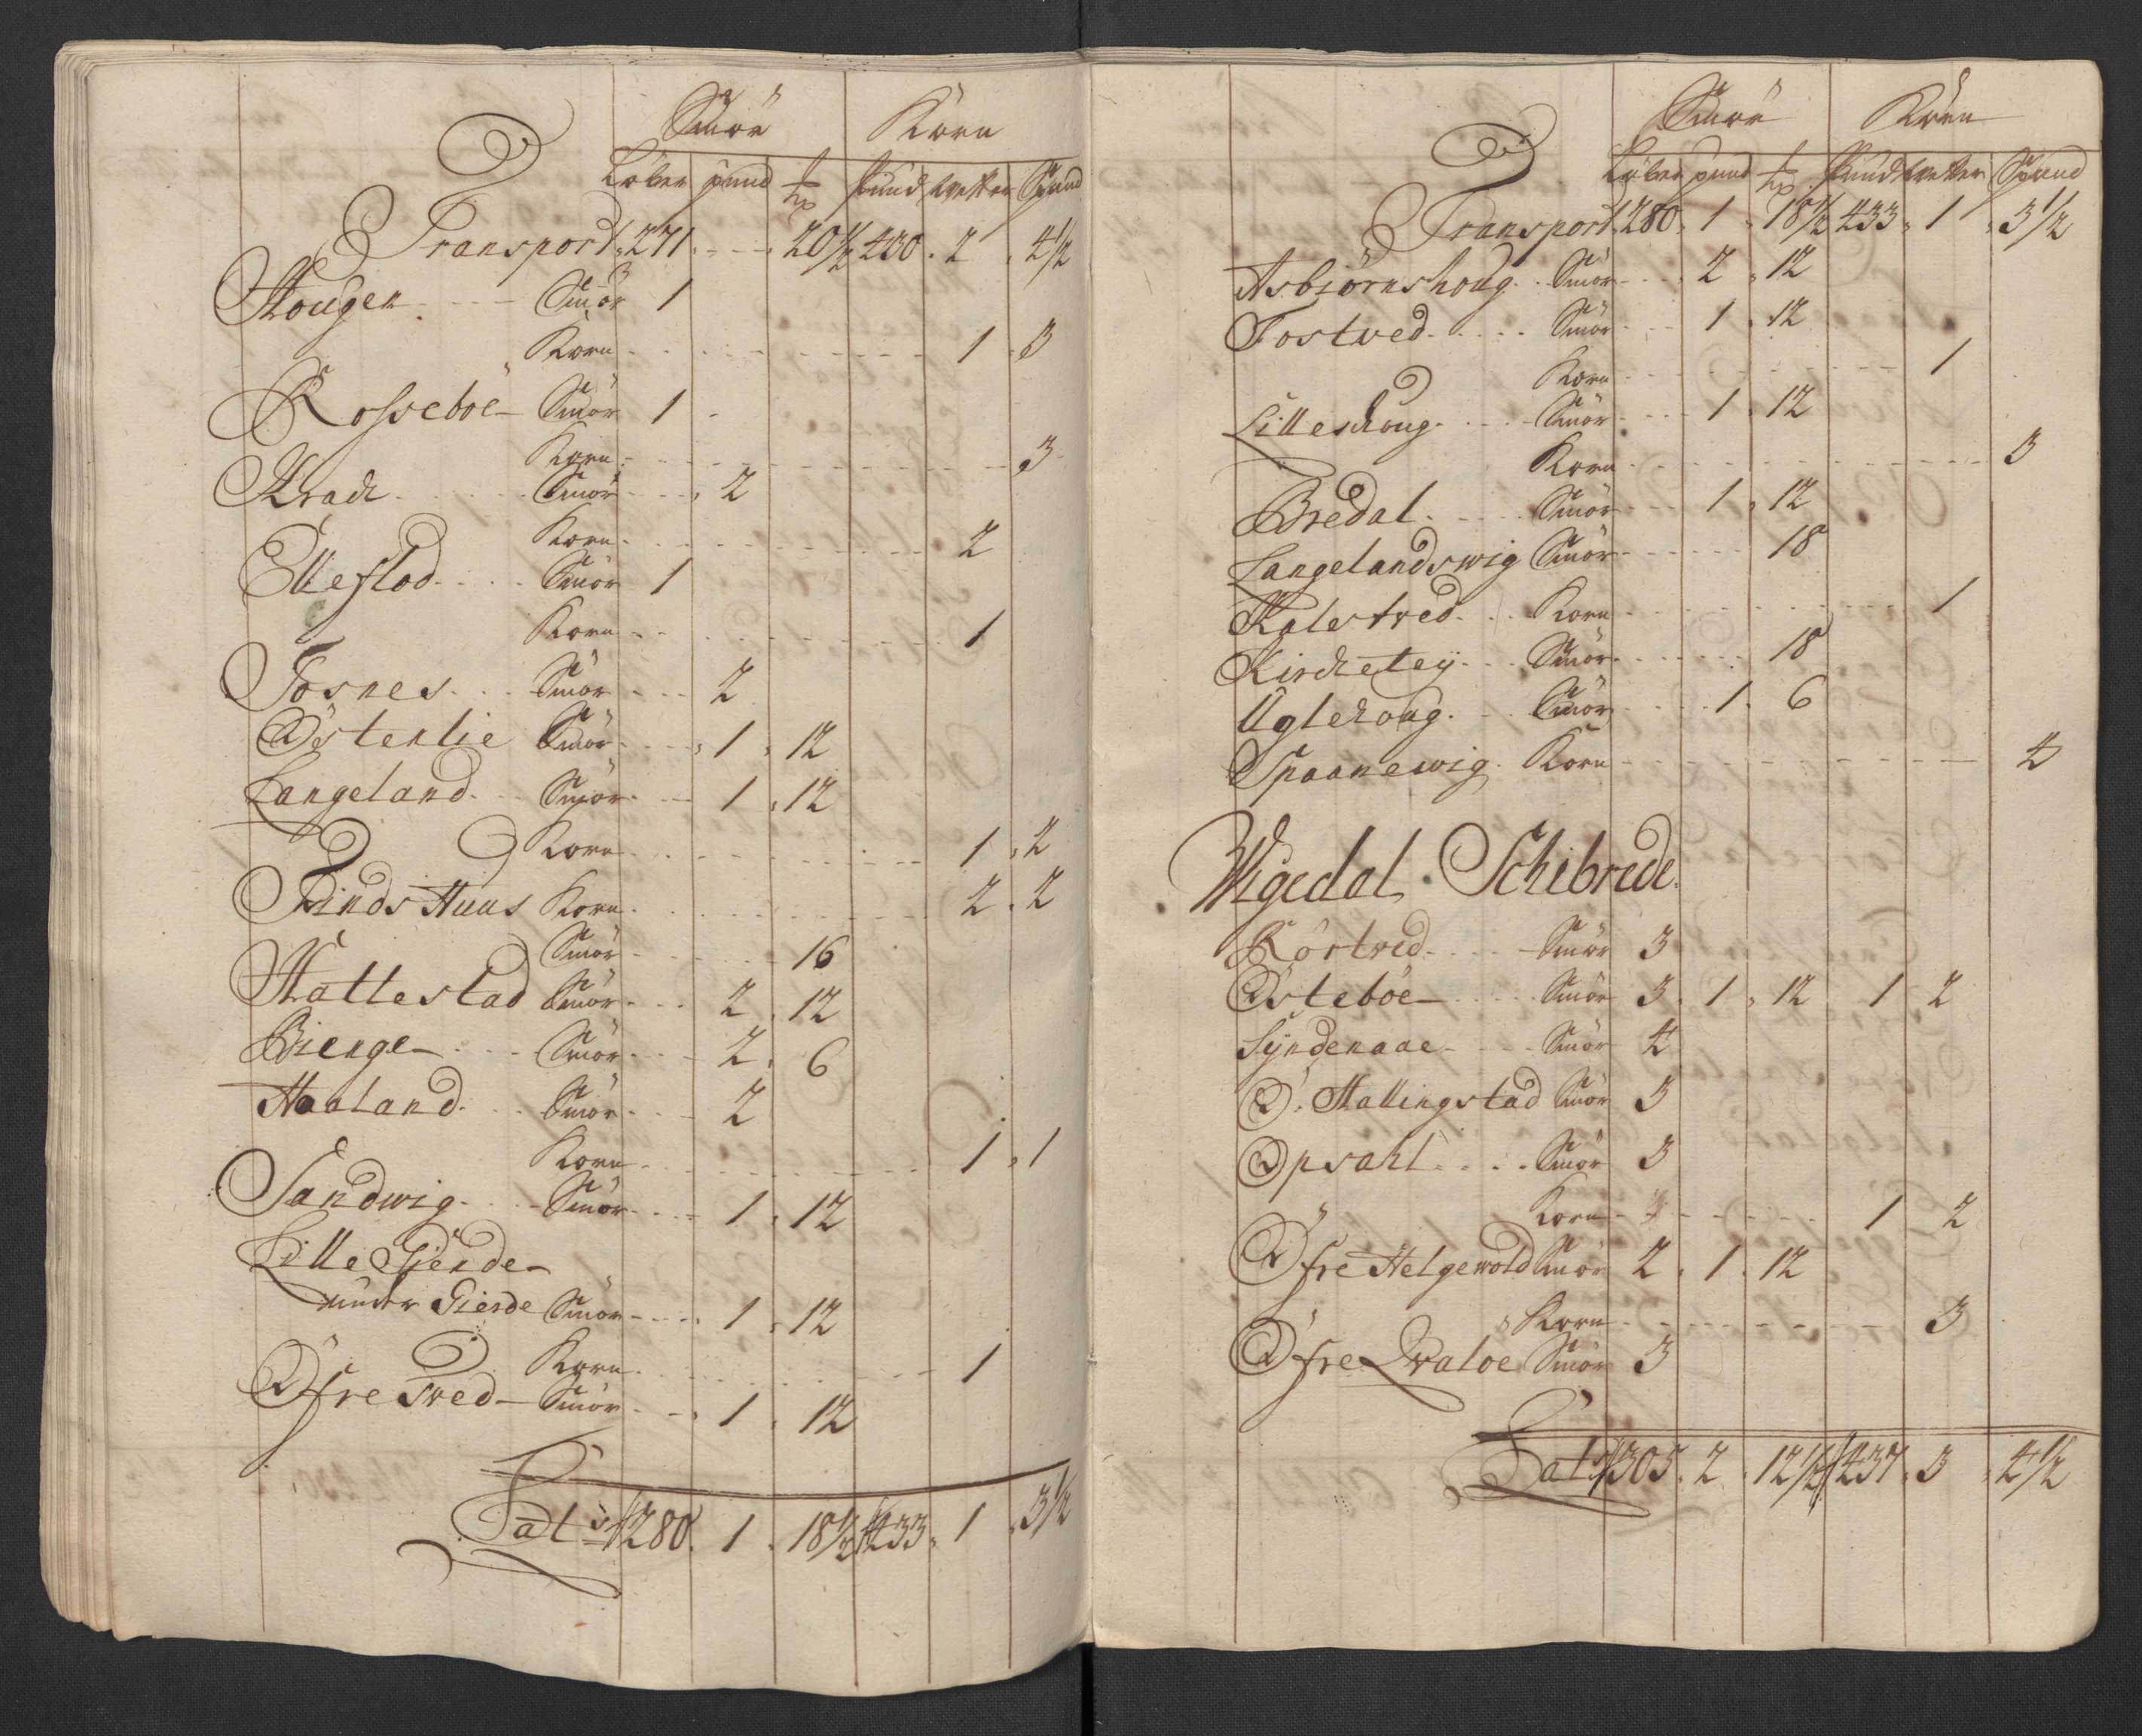 Smör Korn
Löber pund ℔ Pund wetter Spand
Transport 271 - - 20½ 430 . 2 . 4½
Hougen . - - Smör 1
Korn - - - - 1 . 3
Rosseböe Smör 1 -
Korn - - - - 3
Krach . . . Smör - - 2
Korn - - - - 2
Elleflod . . . Smör 1
Korn - - - - 1
Fosnes . . . Smör - - 2
Östenlie Smör - - 1 . 12
Langeland . . Smör - - 1 . 12
Korn - - - - 1 . 2
Findshuus Korn - - - - 2 . 2
Smör - - - 16
Hattestad Smör - - 2 . 12
Bienge - . . Smör - - 2 . 6
Haaland . . . Smör - - 2
Korn - - - - 1 . 1
Sandwig . . . Smör - - 1 . 12
Lille Gierde
under Gierde Smör - - 1 . 12
Korn - - - - 1
Öfre Swed - Smör - - 1 . 12
Lat 280 . 1 . 18½ 433 . 1 . 3½
Smör Korn
Löber pund ℔ Pund wetter Spand
Transport 280 . 1 . 18½ 433 . 1 . 3½
Asbiörnshoug . . Smör - - 2 . 12
Tostwed . . . . Smör - - 1 . 12
Korn - - - - 1
Lilleschoug . . . Smör - - 1 . 12
Korn - - - - 3
Bredal . . . Smör - - 1 . 12
Langelandswig Smör - - - 18
Kalestwed . . Korn - - - - 1
Kircheteÿ . . . Smör - - - 18
Uglehoug . . . Smör - - 1 . 6
Spaanewig . Korn - - - - 4
Wigedal Schibrede
Rörtwed . . . . Smör 3
Östeböe . . . . Smör 3 . 1 . 12 1 2
Sÿndenaae . . . Smör 4
Ö. Hallingstad Smör 3
Opsahl . . . . Smör 3
Korn - - - - 1 2
Öfre Helgewold Smör 2 . 1 . 12
Korn - - - - 3
Öfre Qvaloe Smör 3
Lat 305 . 2 . 12½ 437 . 3 . 4½